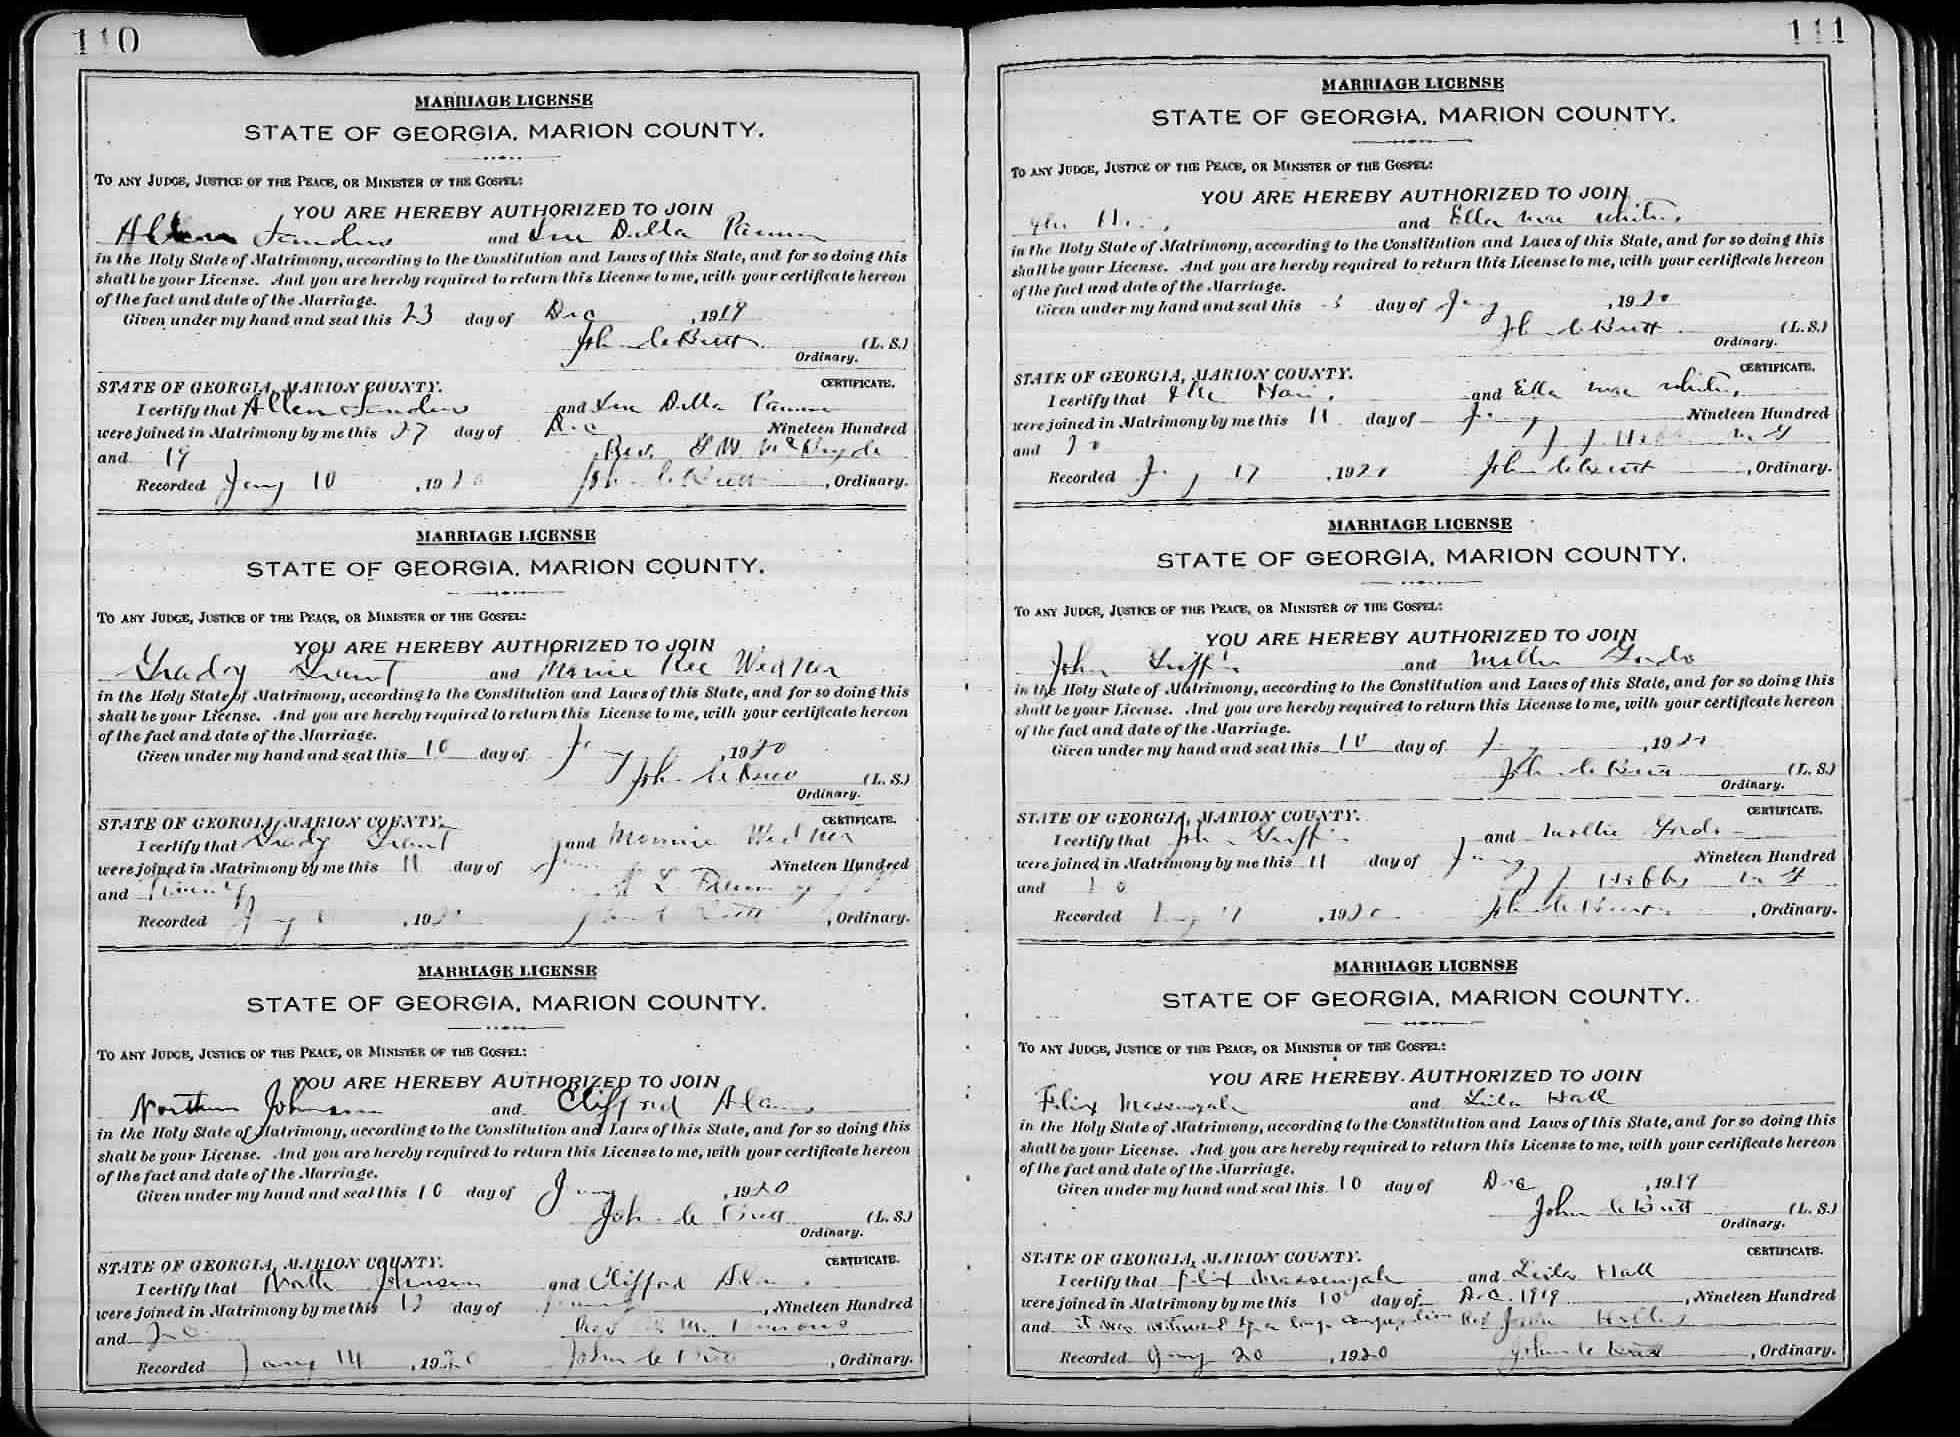 110
MARRIAGE LICENSE
STATE OF GEORGIA, MARION COUNTY.
TO ANY JUDGE, JUSTICE OF THE PEACE, OR MINISTER OF THE GOSPEL:
YOU ARE HEREBY AUTHORIZED TO JOIN
Allen Sanders and Della
in the Holy State of Matrimony, according to the Constitution and Laws of this State, and for so doing this
shall be your License. And you are hereby required to return this License to me, with your certificate hereon
of the fact and date of the Marriage.
Given under my hand and seal this 23 day of Dec, 1919
John C Butt (L. S.)
Ordinary.
STATE OF GEORGIA, MARION COUNTY. CERTIFICATE.
I certify that Allen Sanders and Della
were joined in Matrimony by me this 27 day of Dec Nineteen Hundred
and 19 Rev. G W McBryde
Recorded Jany 10, 1920 John C Butt, Ordinary.
MARRIAGE LICENSE
STATE OF GEORGIA, MARION COUNTY.
TO ANY JUDGE, JUSTICE OF THE PEACE, OR MINISTER OF THE GOSPEL:
YOU ARE HEREBY AUTHORIZED TO JOIN
Grady Grant and
in the Holy State of Matrimony, according to the Constitution and Laws of this State, and for so doing this
shall be your License. And you are hereby required to return this License to me, with your certificate hereon
of the fact and date of the Marriage.
Given under my hand and seal this 10 day of Jany, 1920
John C Butt (L. S.)
Ordinary.
STATE OF GEORGIA, MARION COUNTY. CERTIFICATE.
I certify that Grady Grant and
were joined in Matrimony by me this 11 day of Jany Nineteen Hundred
and Twenty
Recorded Jany, 1920 John C Butt, Ordinary.
MARRIAGE LICENSE
STATE OF GEORGIA, MARION COUNTY.
TO ANY JUDGE, JUSTICE OF THE PEACE, OR MINISTER OF THE GOSPEL:
YOU ARE HEREBY AUTHORIZED TO JOIN
Johnson and Clifford
in the Holy State of Matrimony, according to the Constitution and Laws of this State, and for so doing this
shall be your License. And you are hereby required to return this License to me, with your certificate hereon
of the fact and date of the Marriage.
Given under my hand and seal this 10 day of Jany, 1920
John C Butt (L. S.)
Ordinary.
STATE OF GEORGIA, MARION COUNTY. CERTIFICATE.
I certify that Johnson and Clifford
were joined in Matrimony by me this day of Jany, Nineteen Hundred
and 20 Rev
Recorded Jany 14, 1920 John C Butt, Ordinary.
111
MARRIAGE LICENSE
STATE OF GEORGIA, MARION COUNTY.
TO ANY JUDGE, JUSTICE OF THE PEACE, OR MINISTER OF THE GOSPEL:
YOU ARE HEREBY AUTHORIZED TO JOIN
and Ella Mae
in the Holy State of Matrimony, according to the Constitution and Laws of this State, and for so doing this
shall be your License. And you are hereby required to return this License to me, with your certificate hereon
of the fact and date of the Marriage.
Given under my hand and seal this day of Jany, 1920
John C Butt (L. S.)
Ordinary.
STATE OF GEORGIA, MARION COUNTY. CERTIFICATE.
I certify that and Ella Mae
were joined in Matrimony by me this 11 day of Jany Nineteen Hundred
and 20 J J Hobbs M G
Recorded Jany 17, 1920 John C Butt, Ordinary.
MARRIAGE LICENSE
STATE OF GEORGIA, MARION COUNTY.
TO ANY JUDGE, JUSTICE OF THE PEACE, OR MINISTER OF THE GOSPEL:
YOU ARE HEREBY AUTHORIZED TO JOIN
John Griffin and Mollie
in the Holy State of Matrimony, according to the Constitution and Laws of this State, and for so doing this
shall be your License. And you are hereby required to return this License to me, with your certificate hereon
of the fact and date of the Marriage.
Given under my hand and seal this 10 day of Jany, 1920
John C Butt (L. S.)
Ordinary.
STATE OF GEORGIA, MARION COUNTY. CERTIFICATE.
I certify that John Griffin and Mollie
were joined in Matrimony by me this 11 day of Jany Nineteen Hundred
and 20 J J Hobbs M G
Recorded Jany 17, 1920 John C Butt, Ordinary.
MARRIAGE LICENSE
STATE OF GEORGIA, MARION COUNTY.
TO ANY JUDGE, JUSTICE OF THE PEACE, OR MINISTER OF THE GOSPEL:
YOU ARE HEREBY AUTHORIZED TO JOIN
Felix Massengale and Leila Hall
in the Holy State of Matrimony, according to the Constitution and Laws of this State, and for so doing this
shall be your License. And you are hereby required to return this License to me, with your certificate hereon
of the fact and date of the Marriage.
Given under my hand and seal this 10 day of Dec, 1919
John C Butt (L. S.)
Ordinary.
STATE OF GEORGIA, MARION COUNTY. CERTIFICATE.
I certify that Felix Massengale and Leila Hall
were joined in Matrimony by me this 10 day of Dec. 1919, Nineteen Hundred
and it was witnessed by a large congregation Rev
Recorded Jany 20, 1920 John C Butt, Ordinary.